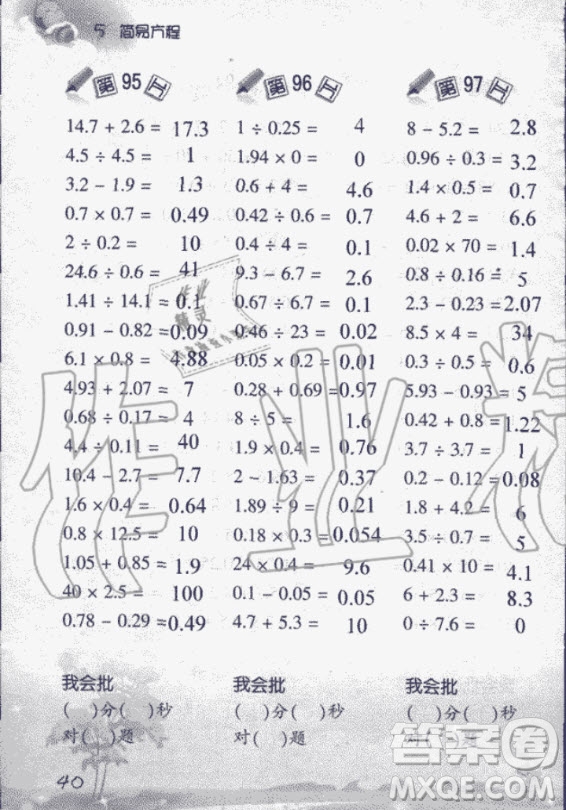 5 简易方程
第95工
14.7 + 2.6 = 17.3
4.5 ÷ 4.5 = 1
3.2 − 1.9 = 1.3
0.7 × 0.7 = 0.49
2 ÷ 0.2 = 10
24.6 ÷ 0.6 = 41
1.41 ÷ 14.1 = 0.1
0.91 − 0.82 = 0.09
6.1 × 0.8 = 4.88
4.93 + 2.07 = 7
0.68 ÷ 0.17 = 4
4.4 ÷ 0.11 = 40
10.4 − 2.7 = 7.7
1.6 × 0.4 = 0.64
0.8 × 12.5 = 10
1.05 + 0.85 = 1.9
40 × 2.5 = 100
0.78 − 0.29 = 0.49
我会批
( )分( )秒
对( )题
第96工
1 ÷ 0.25 = 4
1.94 × 0 = 0
0.6 + 4 = 4.6
0.42 ÷ 0.6 = 0.7
0.4 ÷ 4 = 0.1
9.3 − 6.7 = 2.6
0.67 ÷ 6.7 = 0.1
0.46 ÷ 23 = 0.02
0.05 × 0.2 = 0.01
0.28 + 0.69 = 0.97
8 ÷ 5 = 1.6
1.9 × 0.4 = 0.76
2 − 1.63 = 0.37
1.89 ÷ 9 = 0.21
0.18 × 0.3 = 0.054
24 × 0.4 = 9.6
0.1 − 0.05 = 0.05
4.7 + 5.3 = 10
我会批
( )分( )秒
对( )题
第97工
8 − 5.2 = 2.8
0.96 ÷ 0.3 = 3.2
1.4 × 0.5 = 0.7
4.6 + 2 = 6.6
0.02 × 70 = 1.4
0.8 ÷ 0.16 = 5
2.3 − 0.23 = 2.07
8.5 × 4 = 34
0.3 ÷ 0.5 = 0.6
5.93 − 0.93 = 5
0.42 + 0.8 = 1.22
3.7 ÷ 3.7 = 1
0.2 − 0.12 = 0.08
1.8 + 4.2 = 6
3.5 ÷ 0.7 = 5
0.41 × 10 = 4.1
6 + 2.3 = 8.3
0 ÷ 7.6 = 0
我会批
( )分( )秒
对( )题
40
作业精灵
答案卷
MXQE.COM